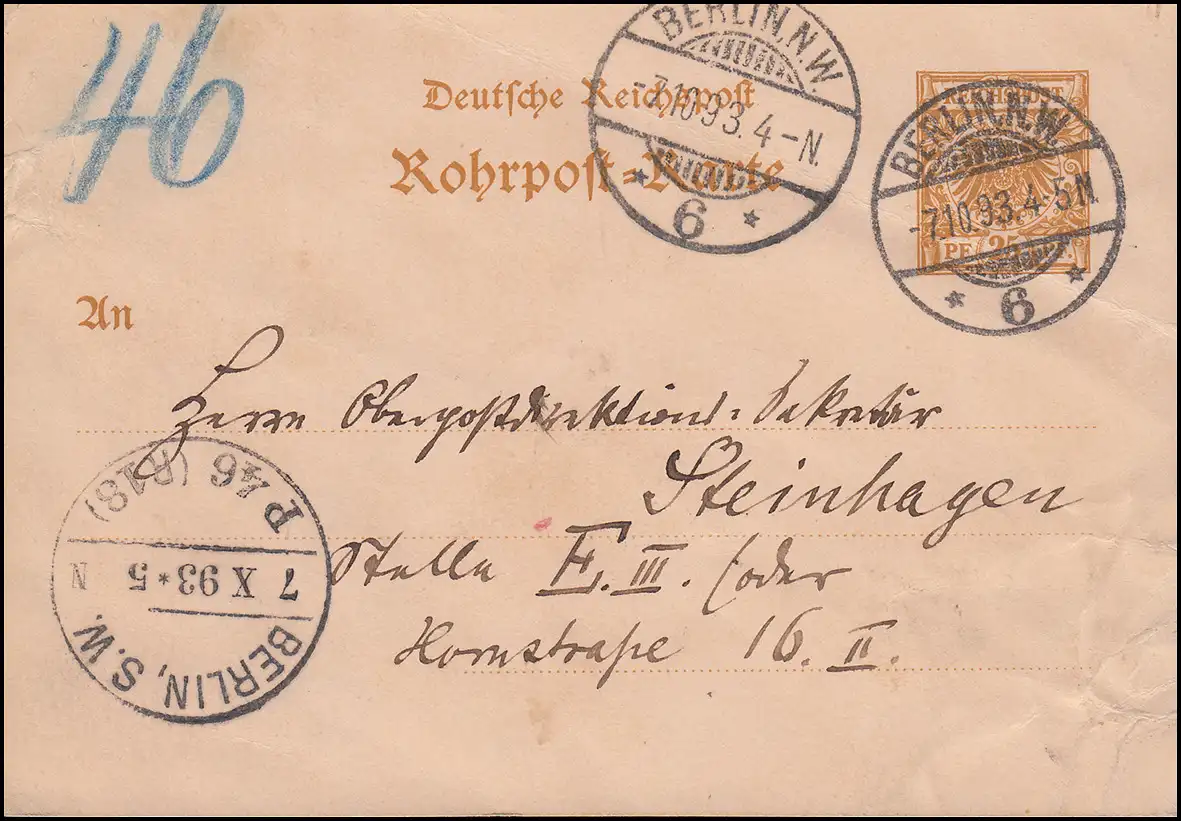 46
Deutsche Reichspost
Rohrpost=Karte
BERLIN.N.W.
-7.10.93.4-N.
* 6 *
REICHSPOST
25
PF.
BERLIN.N.W.
-7.10.93.4-5N.
* 6 *
An
Herrn Oberpostdirektions-Sekretär
Steinhagen
Stelle E. III. (oder
Hornstraße 16. II.
P 46 (R18)
7 X 93 * 5 N
BERLIN, S.W.